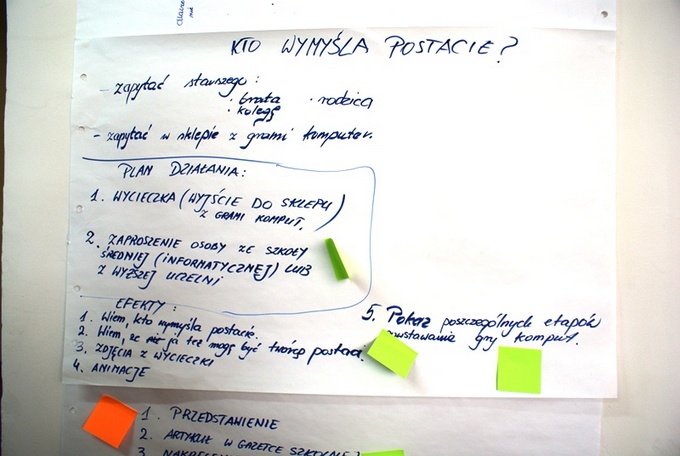 KTO WYMYŚLA POSTACIE?
- zapytać starszego:
· brata · rodzica
· kolegę
- zapytać w sklepie z grami komputer.
PLAN DZIAŁANIA:
1. WYCIECZKA (WYJŚCIE DO SKLEPU)
Z GRAMI KOMPUT.
2. ZAPROSZENIE OSOBY ZE SZKOŁY
ŚREDNIEJ (INFORMATYCZNEJ) LUB
Z WYŻSZEJ UCZELNI
EFEKTY:
1. Wiem, kto wymyśla postacie.
2. Wiem, że ja też mogę być twórcą postaci.
3. ZDJĘCIA Z WYCIECZKI
4. ANIMACJE
5. Pokaz poszczególnych etapów
powstawania gry komput.
1. PRZEDSTAWIENIE
2. ARTYKUŁ W GAZETCE SZKOLNEJ
3.